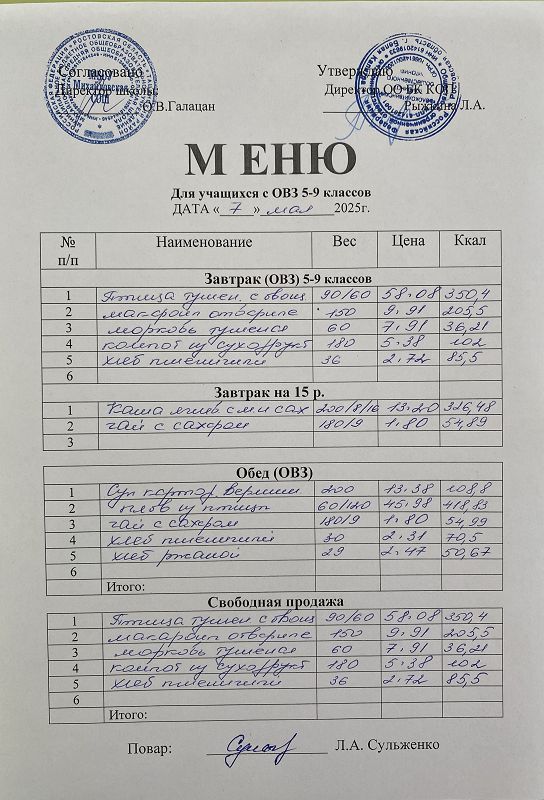 Согласовано
Утверждаю
Директор школы:
Директор ООО БК КОП
О.В.Галацан
Рыжкина Л.А.
М ЕНЮ
Для учащихся с ОВЗ 5-9 классов
ДАТА « 7 » мая 2025г.
№ п/п Наименование Вес Цена Ккал
Завтрак (ОВЗ) 5-9 классов
1 Птица тушен. с овощ 90/60 58-08 350,4
2 макароны отварные 150 9-91 205,5
3 морковь тушеная 60 7-91 36,21
4 компот из сухофрукт 180 5-38 102
5 хлеб пшеничный 36 2-72 85,5
6
Завтрак на 15 р.
1 Каша ячнев с м и сах 200/8/10 13-20 326,48
2 чай с сахаром 180/9 1-80 54,89
3
Обед (ОВЗ)
1 Суп картоф. вермиш 200 13-38 108,8
2 плов из птицы 60/120 45-98 418,83
3 чай с сахаром 180/9 1-80 54,99
4 хлеб пшеничный 30 2-31 70,5
5 хлеб ржаной 29 2-47 50,67
6
Итого:
Свободная продажа
1 Птица тушен с овощ 90/60 58-08 350,4
2 макароны отварные 150 9-91 205,5
3 морковь тушеная 60 7-91 36,21
4 компот из сухофрукт 180 5-38 102
5 хлеб пшеничный 36 2-72 85,5
6
Итого:
Повар: Л.А. Сульженко